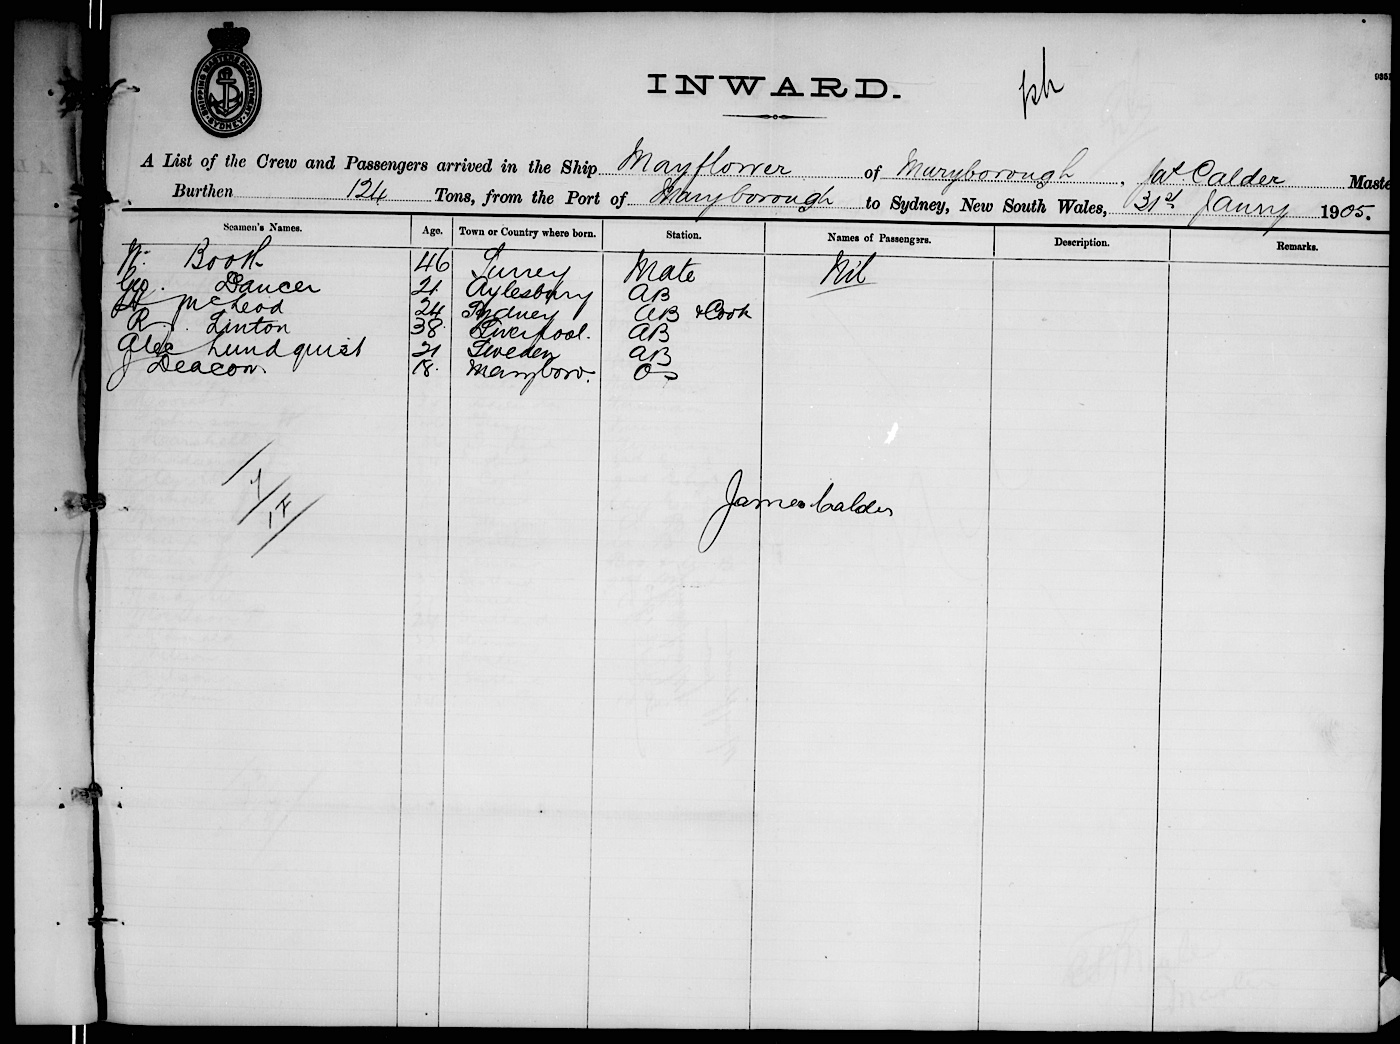 SHIPPING MASTER'S DEPARTMENT
SYDNEY
INWARD.
A List of the Crew and Passengers arrived in the Ship Mayflower of Maryborough, Jas Calder Maste
Burthen 124 Tons, from the Port of Maryborough to Sydney, New South Wales, 31st Janry 1905.
Seamen's Names. Age. Town or Country where born. Station. Names of Passengers. Description. Remarks.
W. Booth 46 Surrey Mate Nil
Geo. Dancer 21 Aylesbury AB
McLeod 24 Sydney AB & Cook
R. Linton 38 Liverpool. AB
Alec Lundquist 21 Sweden AB
J Deacon 18. Maryboro. OS
James Calder